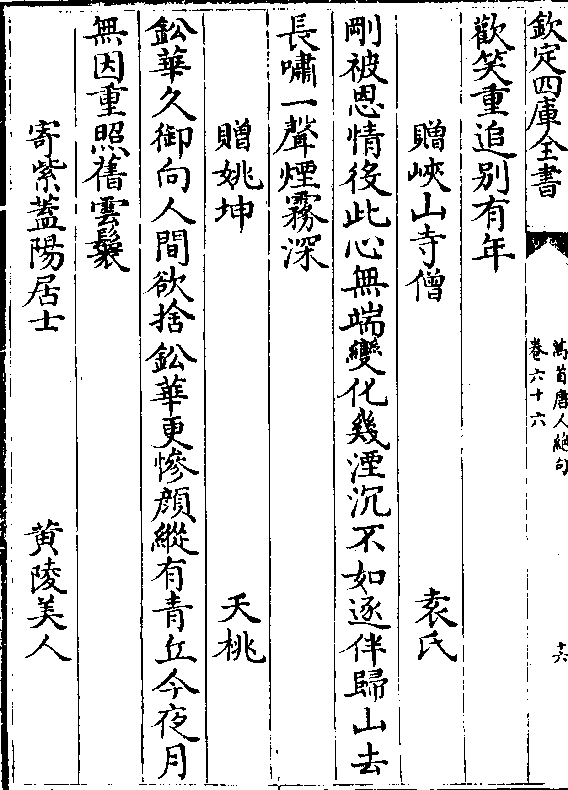 欽定四庫全書
萬首唐人絶句
卷六十六
十六
歡笑重追别有年
贈峽山寺僧　袁氏
剛被恩情役此心無端變化幾湮沉不如逐伴歸山去
長嘯一聲煙霧深
贈姚坤　夭桃
鉛華久御向人間欲捨鉛華更慘顔縱有青丘今夜月
無因重照舊雲鬟
寄紫蓋陽居士　黄陵美人